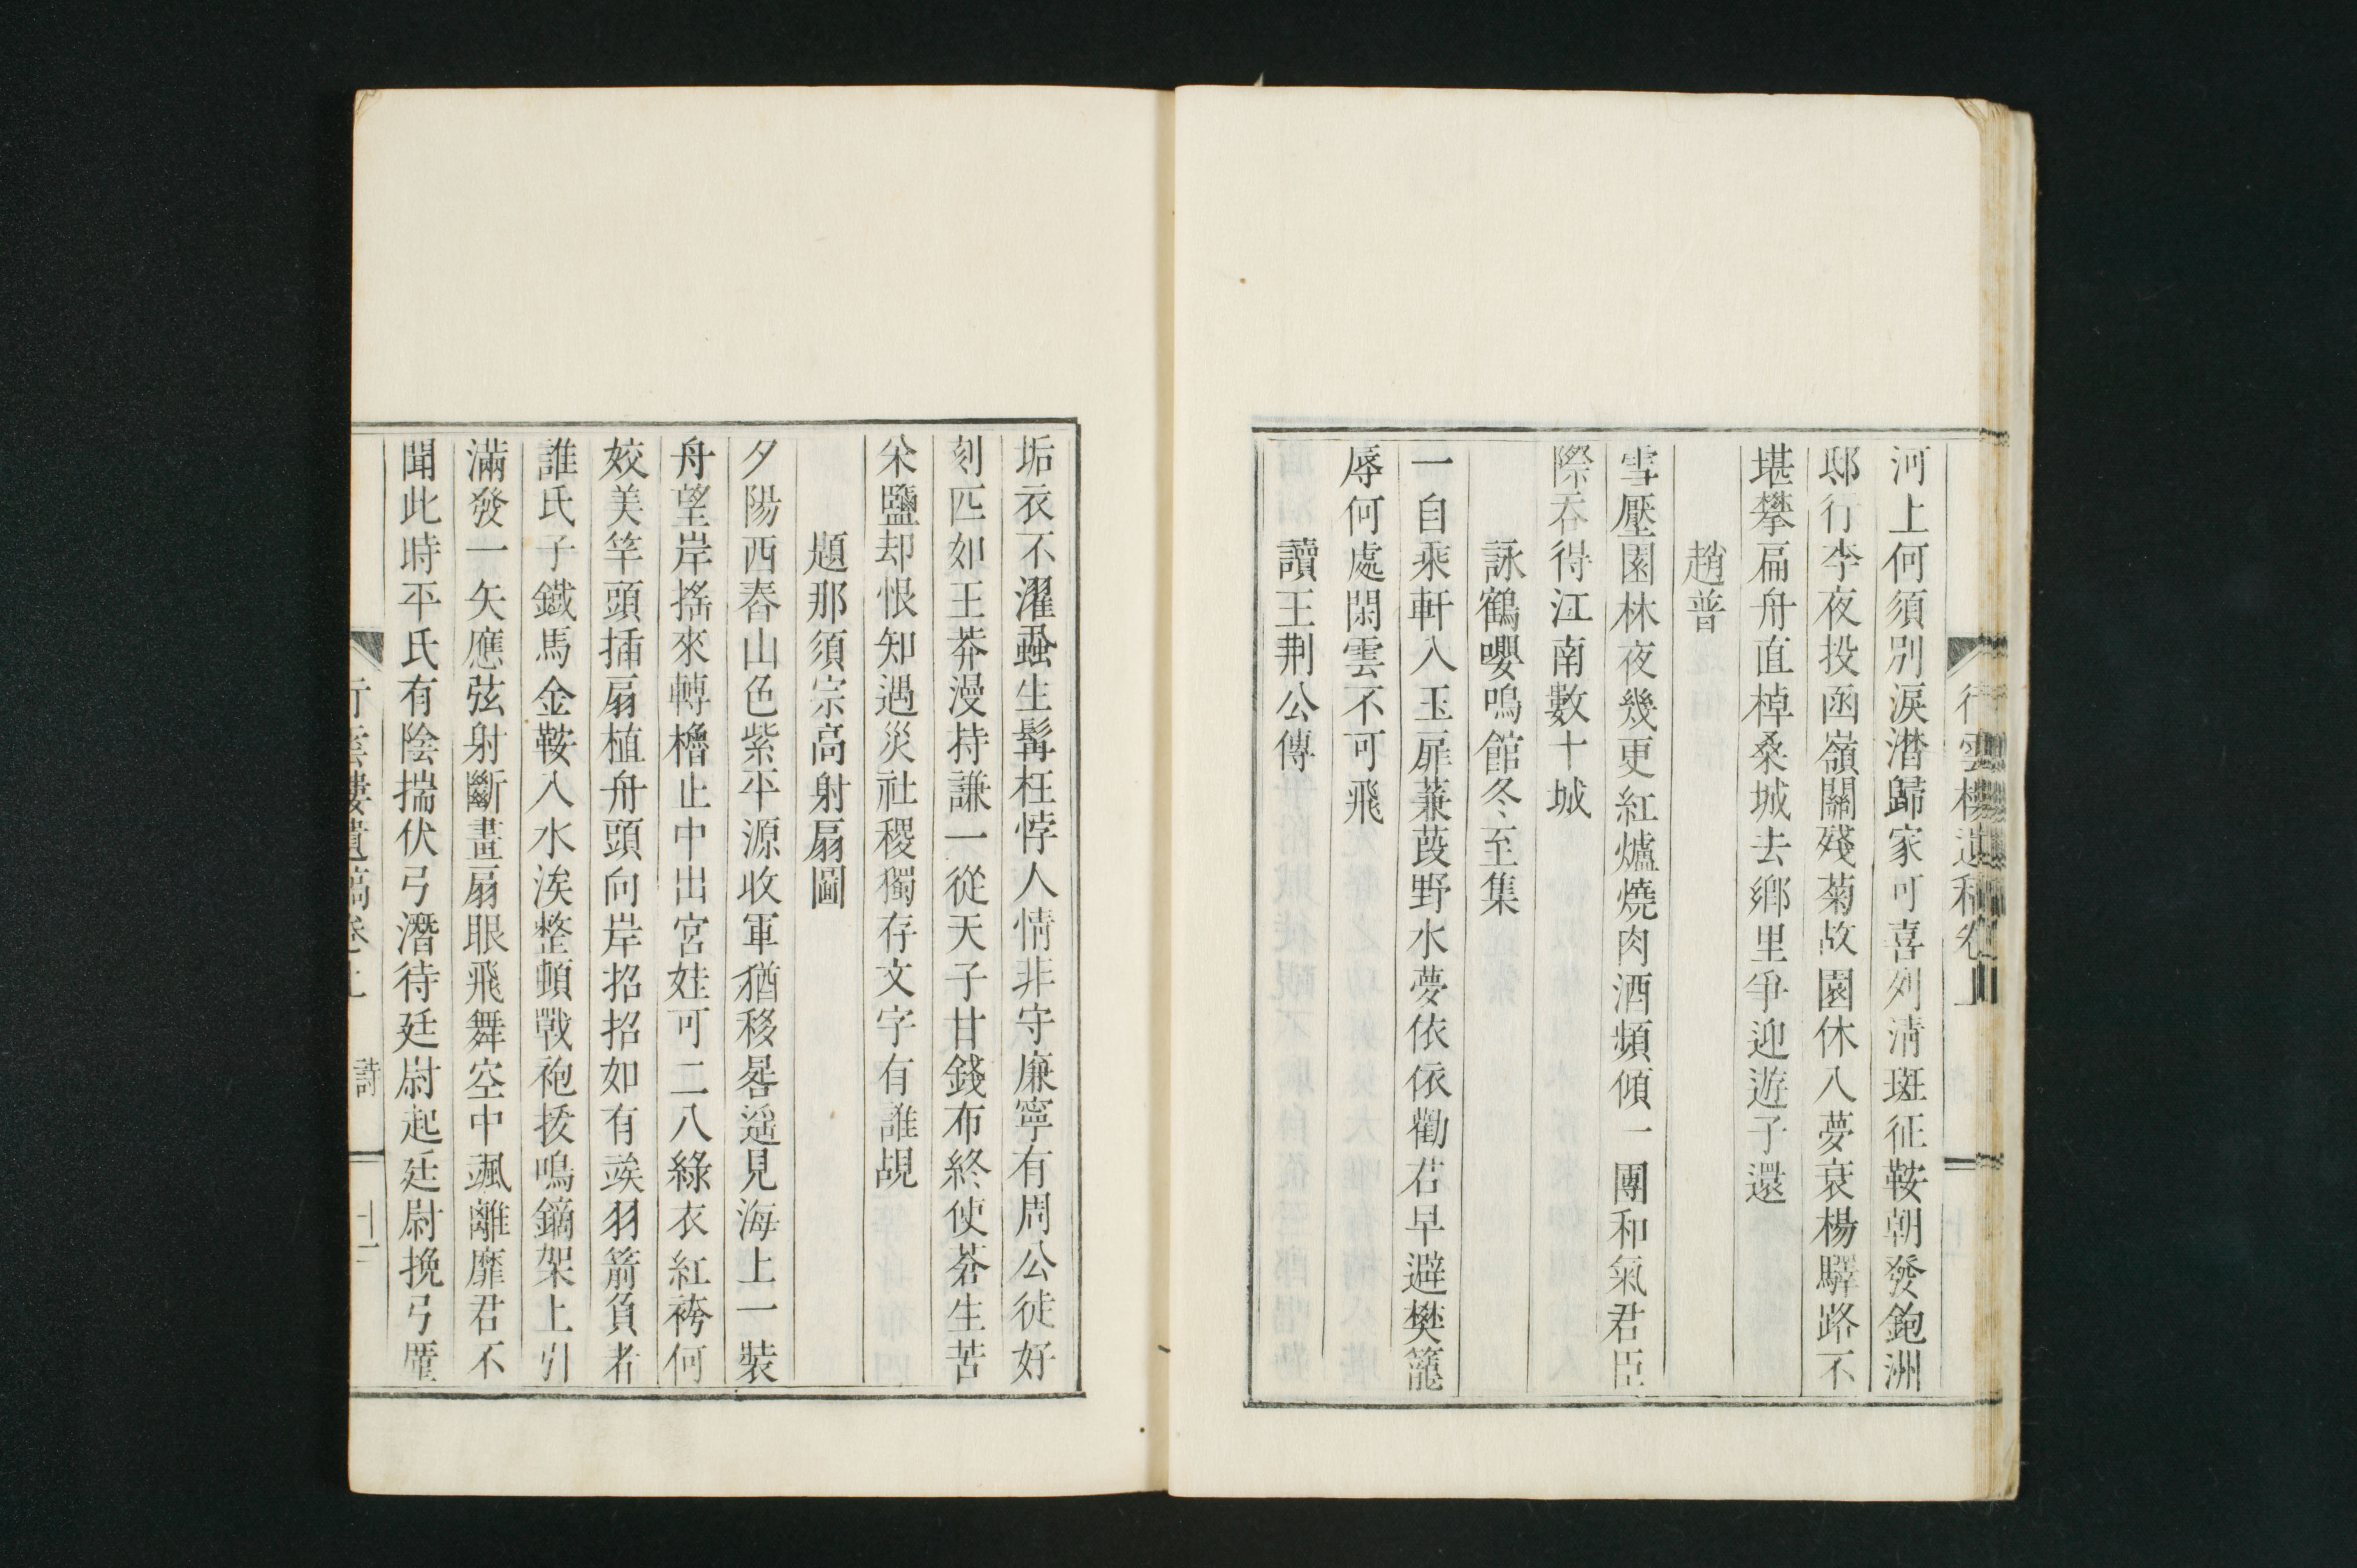 行雲樓遺稿卷上
河上何須別淚潸歸家可喜列清班征鞍朝發鉋洲
邸行李夜投函嶺關殘菊故園休入夢衰楊驛路不
堪攀扁舟直棹桑城去鄉里爭迎遊子還
趙普
雪壓園林夜幾更紅爐燒肉酒頻傾一團和氣君臣
際吞得江南數十城
詠鶴嚶鳴館冬至集
一自乘軒入玉扉蒹葭野水夢依依勸君早避樊籠
辱何處閑雲不可飛
讀王荆公傳
垢衣不濯蝨生髯枉悖人情非守廉寧有周公徒好
刻匹如王莽漫持謙一從天子甘錢布終使蒼生苦
米鹽却恨知遇災社稷獨存文字有誰覘
題那須宗高射扇圖
夕陽西舂山色紫平源收軍猶移晷遥見海上一裝
舟望岸搖來轉櫓止中出宮娃可二八綠衣紅袴何
姣美竿頭插扇植舟頭向岸招招如有竢羽箭負者
誰氏子鐵馬金鞍入水涘整頓戰袍拔鳴鏑架上引
滿發一矢應弦射斷畫扇眼飛舞空中颯離靡君不
聞此時平氏有陰揣伏弓潛待廷尉起廷尉挽弓
行雲樓遺稿卷上 詩 十二